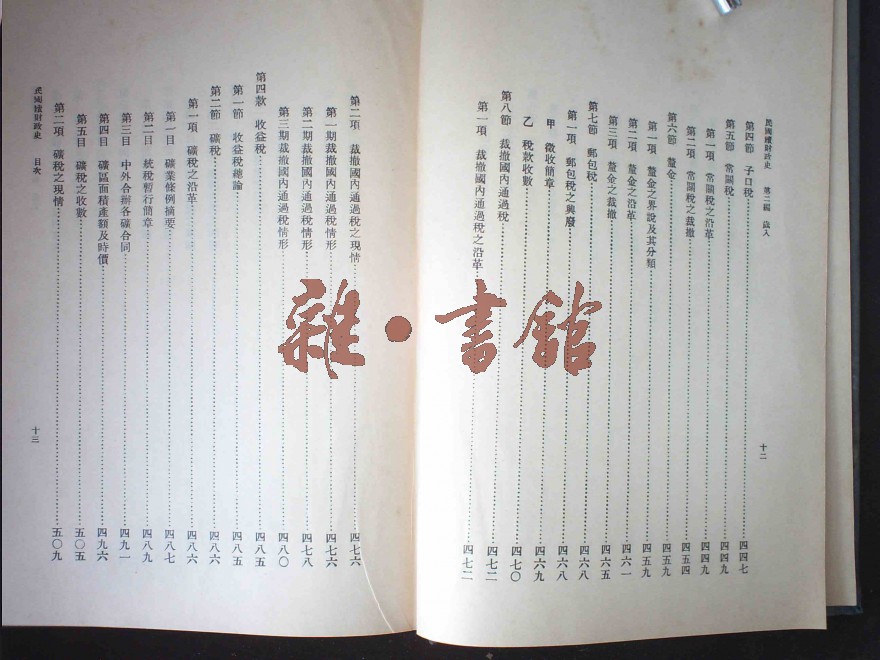 民國續財政史 第二編 歲入 十二
第四節 子口稅 四四七
第五節 常關稅 四四九
第一項 常關稅之沿革 四四九
第二項 常關稅之裁撤 四五四
第六節 釐金 四五九
第一項 釐金之界說及其分類 四五九
第二項 釐金之沿革 四六一
第三項 釐金之裁撤 四六五
第七節 郵包稅 四六八
第一項 郵包稅之興廢 四六八
甲 徵收簡章 四六九
乙 稅款收數 四七〇
第八節 裁撤國內通過稅 四七二
第一項 裁撤國內通過稅之沿革 四七二
第二項 裁撤國內通過稅之現情 四七六
第一期裁撤國內通過稅情形 四七六
第二期裁撤國內通過稅情形 四七八
第三期裁撤國內通過稅情形 四八〇
第四款 收益稅 四八五
第一節 收益稅總論 四八五
第二節 礦稅 四八六
第一項 礦稅之沿革 四八六
第一目 礦業條例摘要 四八七
第二目 統稅暫行簡章 四八九
第三目 中外合辦各礦合同 四九一
第四目 礦區面積產額及時價 四九六
第五目 礦稅之收數 五〇五
第二項 礦稅之現情 五〇九
民國續財政史 目次 十三
雜·書館